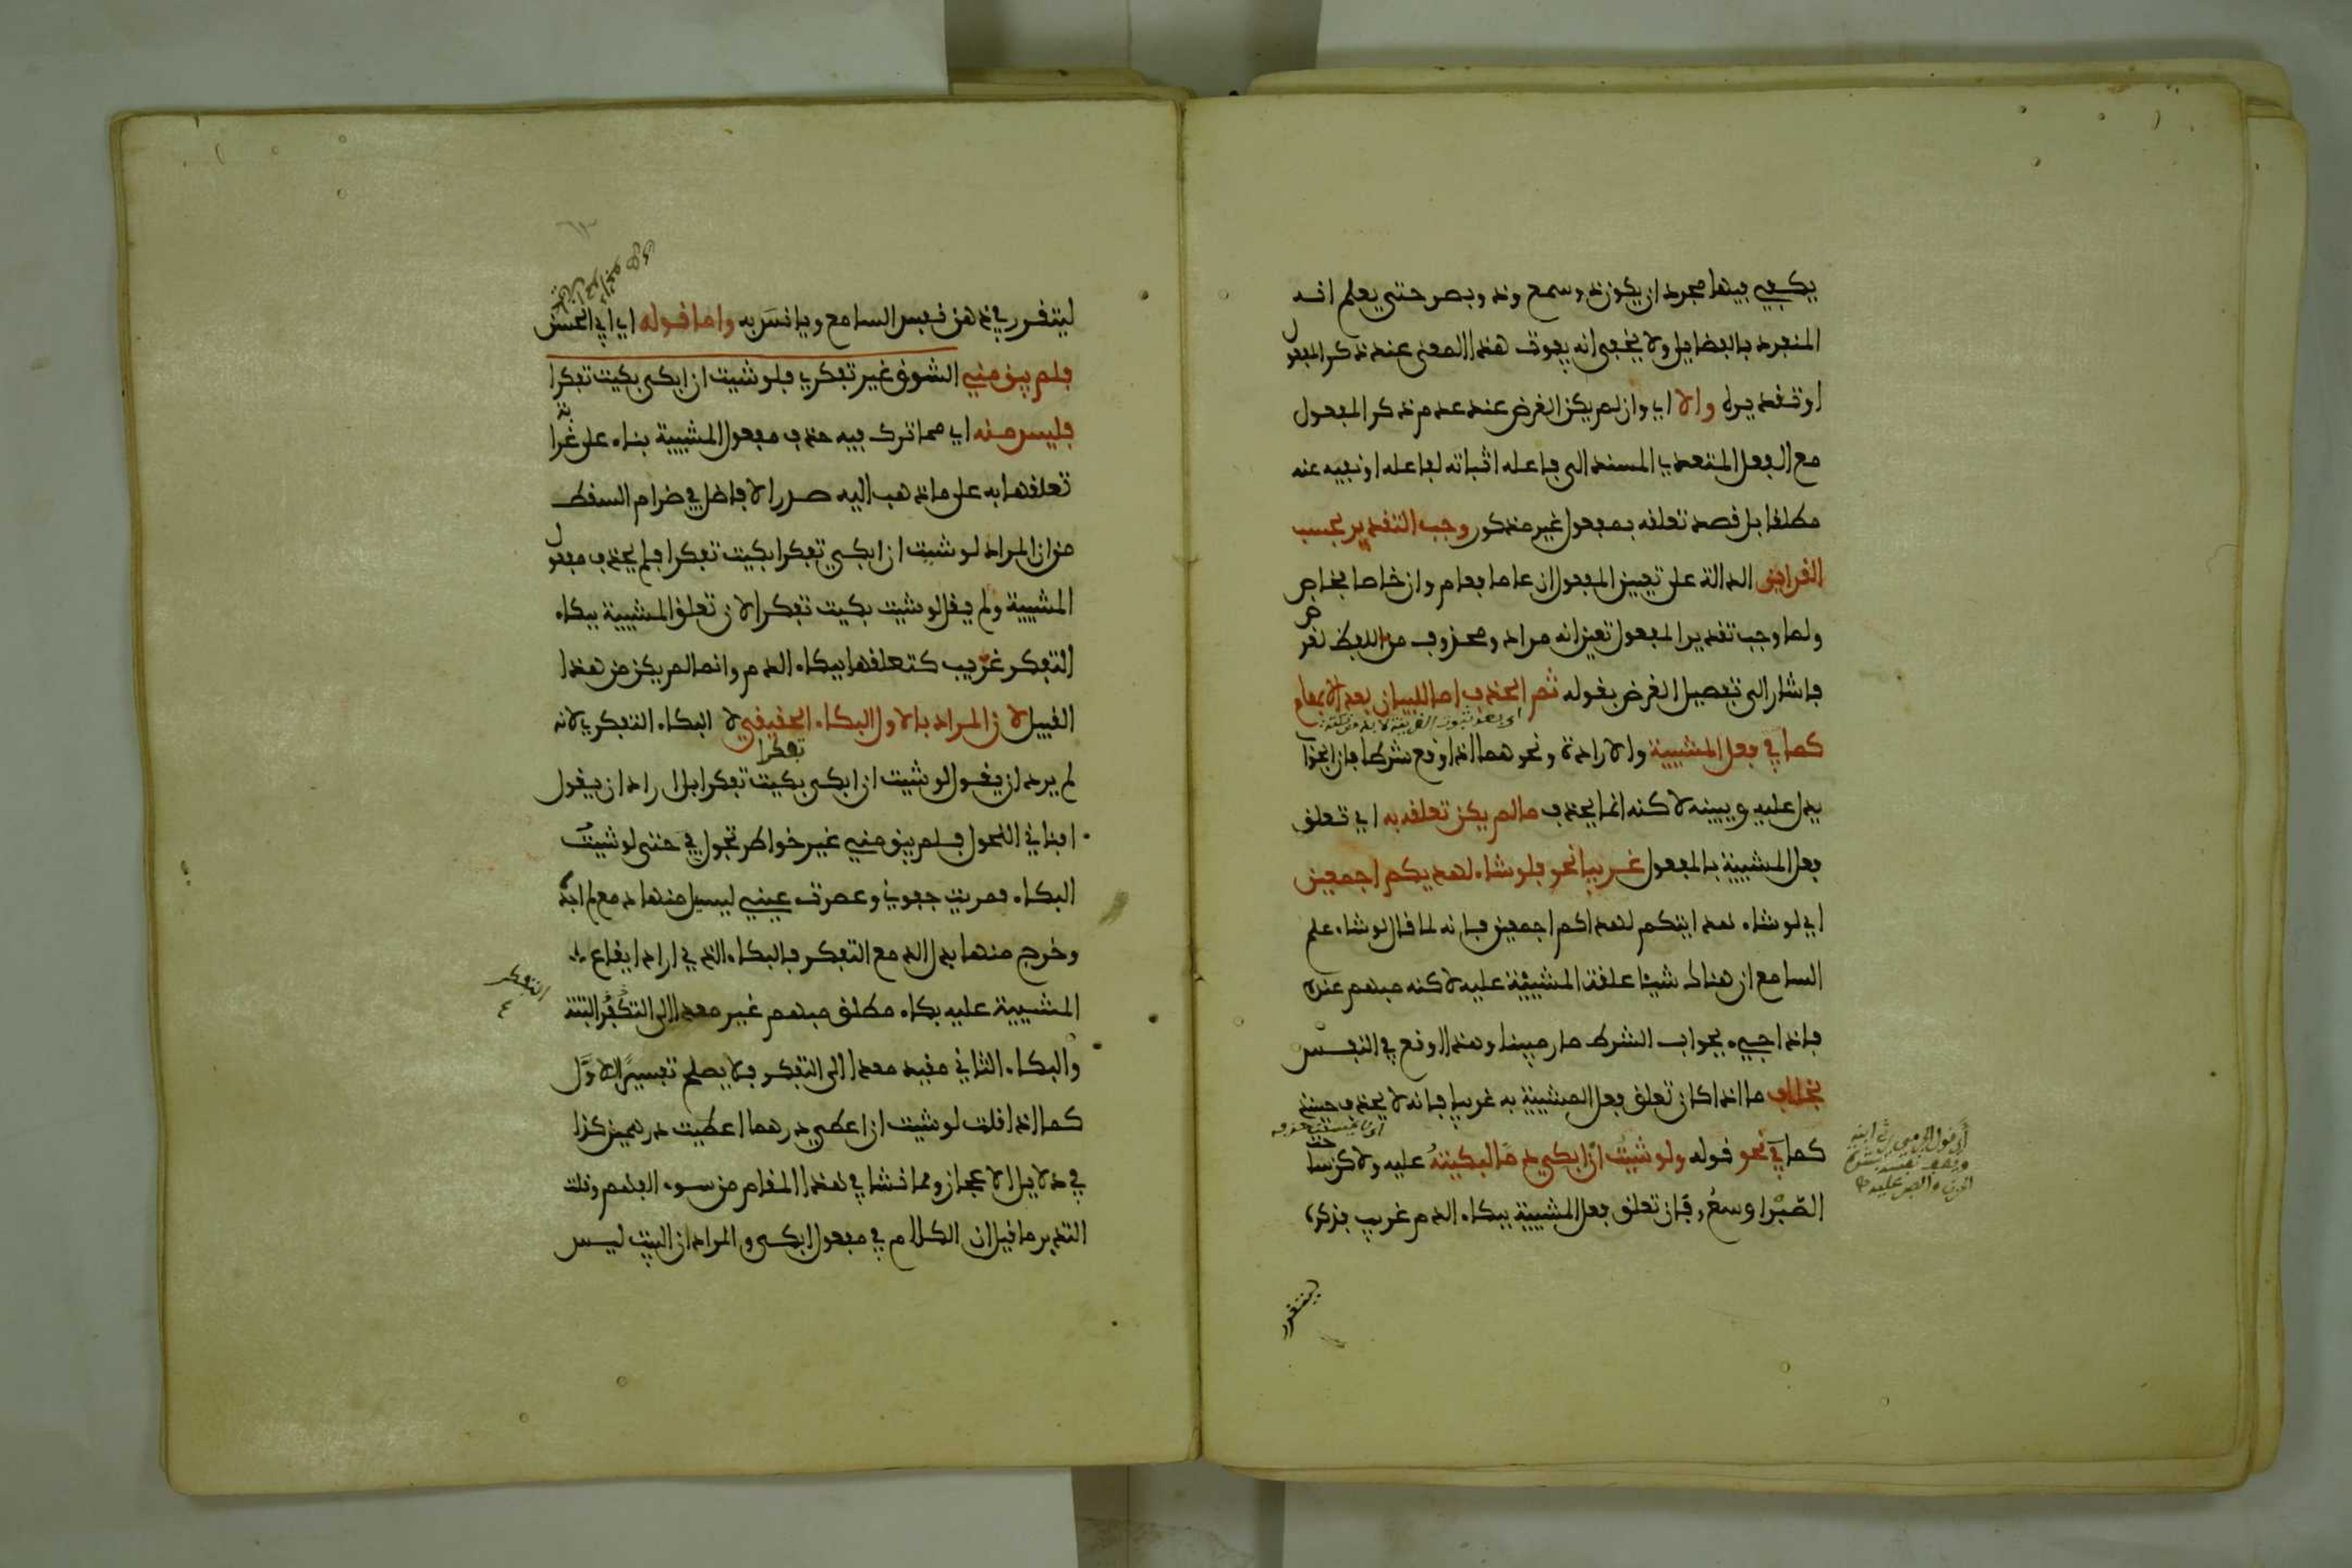 يكفي فيها مجرد ان يكون ذو سمع وذو بصر حتى يعلم انه
المنفرد بالفضايل ولا يخفى انه يفوت هذا المعنى عند ذكر المفعول
او تقديره والا اي وان لم يكن الغرض عند عدم ذكر المفعول
مع الفعل المتعدي المسند الى فاعله اثباته لفاعله او نفيه عنه
مطلقا بل قصد تعلقه بمفعول غير مذكور وجب التقدير بحسب
القراين الدالة على تعيين المفعول ان عاما فعام وان خاصا فخاص
ولما وجب تقدير المفعول تعين انه مراد ومحذوف من اللفظ لغرض
فاشار الى تفصيل الغرض بقوله ثم الحذف اما للبيان بعد الابهام
اي بعد ثبوت القرينة لا بد من نكتة
كما في فعل المشيية والارادة ونحوهما اذا وقع شرطا فان الجواب
يدل عليه ويبينه لاكنه انما يحذف ما لم يكن تعلقه به اي تعلق
فعل المشيية بالمفعول غريبا نحو فلو شاء لهديكم اجمعين
اي لو شاء هدايتكم لهداكم اجمعين فانه لما قال لو شاء علم
السامع ان هناك شيئا علقت المشيئة عليه لاكنه مبهم عنده
فاذا جيء بجواب الشرط صار مبينا وهذا اوقع في النفس
بخلاف ما اذا كان تعلق فعل المشيئة به غريبا فانه لا يحذف حينئذ
كما في نحو قوله ولو شئت ان ابكي دما لبكيته عليه ولاكن ساحت
الصبر اوسع فان تعلق فعل المشيية ببكاء الدم غريب فذكره
ليتقرر
ليتقرر في ذهن السامع ويانس به واما قوله اي ابي الحسن
فلم يبق مني الشوق غير تفكري فلو شيت ان ابكي بكيت تفكرا
فليس منه اي مما ترك فيه حذف مفعول المشيية بناء على غرابة
تعلقها به على ما ذهب اليه صدر الافاضل في ضرام السقط
من ان المراد لو شيت ان ابكي تفكرا بكيت تفكرا فلم يحذف مفعول
المشيية ولم يقل لو شيت بكيت تفكرا لان تعلق المشيية ببكاء
التفكر غريب كتعلقها ببكاء الدم وانما لم يكن من هذا
القبيل لان المراد بالاول البكاء الحقيقي لا البكاء التفكري لانه
لم يرد ان يقول لو شيت ان ابكي تفكرا بكيت تفكرا بل اراد ان يقول
افناني النحول فلم يبق مني غير خواطر تجول في حتى لو شيت
البكاء فمريت جفوني وعصرت عيني ليسيل منها دمع لم اجده
وخرج منها بدل الدمع التفكر فالبكاء الذي اراد ايقاع
المشيية عليه بكاء مطلق مبهم غير معدا الى التفكر البتة
التفكر
والبكاء الثاني مقيد معدا الى التفكر فلا يصلح تفسيرا للاول
كما اذا قلت لو شيت ان اعطي درهما اعطيت درهمين كذا
في دلايل الاعجاز ومما نشا في هذا المقام من سوء الفهم وقلت
التدبر ما قيل ان الكلام في مفعول ابكي والمراد ان البيت ليس